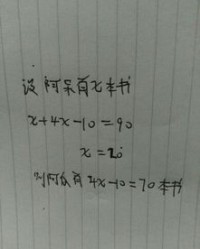 设阿呆有x本书
x+4x-10=90
x=20
则阿瓜有4x-10=70本书